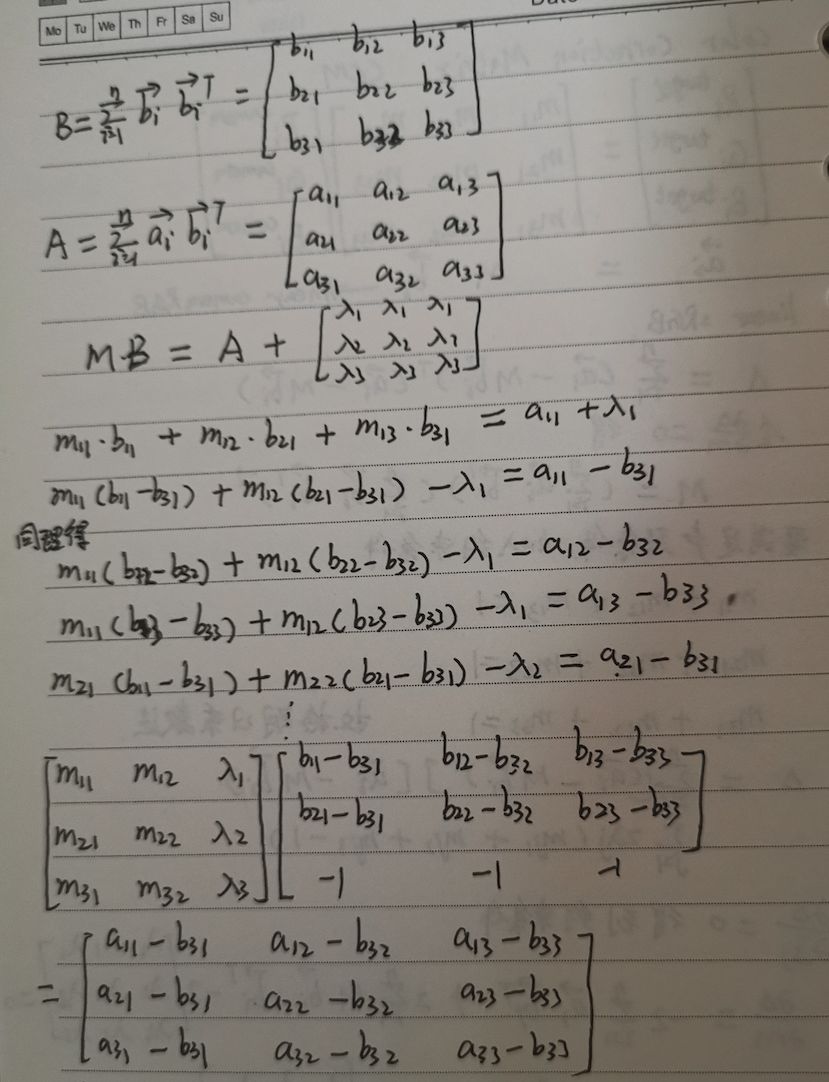 Mo Tu We Th Fr Sa Su
B = \sum_{i=1}^{n} \vec{b_i} \vec{b_i}^T = \begin{bmatrix} b_{11} & b_{12} & b_{13} \\ b_{21} & b_{22} & b_{23} \\ b_{31} & b_{32} & b_{33} \end{bmatrix}
A = \sum_{i=1}^{n} \vec{a_i} \vec{b_i}^T = \begin{bmatrix} a_{11} & a_{12} & a_{13} \\ a_{21} & a_{22} & a_{23} \\ a_{31} & a_{32} & a_{33} \end{bmatrix}
MB = A + \begin{bmatrix} λ_1 & λ_1 & λ_1 \\ λ_2 & λ_2 & λ_2 \\ λ_3 & λ_3 & λ_3 \end{bmatrix}
m_{11} · b_{11} + m_{12} · b_{21} + m_{13} · b_{31} = a_{11} + λ_1
m_{11} (b_{11} - b_{31}) + m_{12} (b_{21} - b_{31}) - λ_1 = a_{11} - b_{31}
同理得
m_{11} (b_{12} - b_{32}) + m_{12} (b_{22} - b_{32}) - λ_1 = a_{12} - b_{32}
m_{11} (b_{13} - b_{33}) + m_{12} (b_{23} - b_{33}) - λ_1 = a_{13} - b_{33}
m_{21} (b_{11} - b_{31}) + m_{22} (b_{21} - b_{31}) - λ_2 = a_{21} - b_{31}
⋮
\begin{bmatrix} m_{11} & m_{12} & λ_1 \\ m_{21} & m_{22} & λ_2 \\ m_{31} & m_{32} & λ_3 \end{bmatrix} \begin{bmatrix} b_{11} - b_{31} & b_{12} - b_{32} & b_{13} - b_{33} \\ b_{21} - b_{31} & b_{22} - b_{32} & b_{23} - b_{33} \\ -1 & -1 & -1 \end{bmatrix}
= \begin{bmatrix} a_{11} - b_{31} & a_{12} - b_{32} & a_{13} - b_{33} \\ a_{21} - b_{31} & a_{22} - b_{32} & a_{23} - b_{33} \\ a_{31} - b_{31} & a_{32} - b_{32} & a_{33} - b_{33} \end{bmatrix}